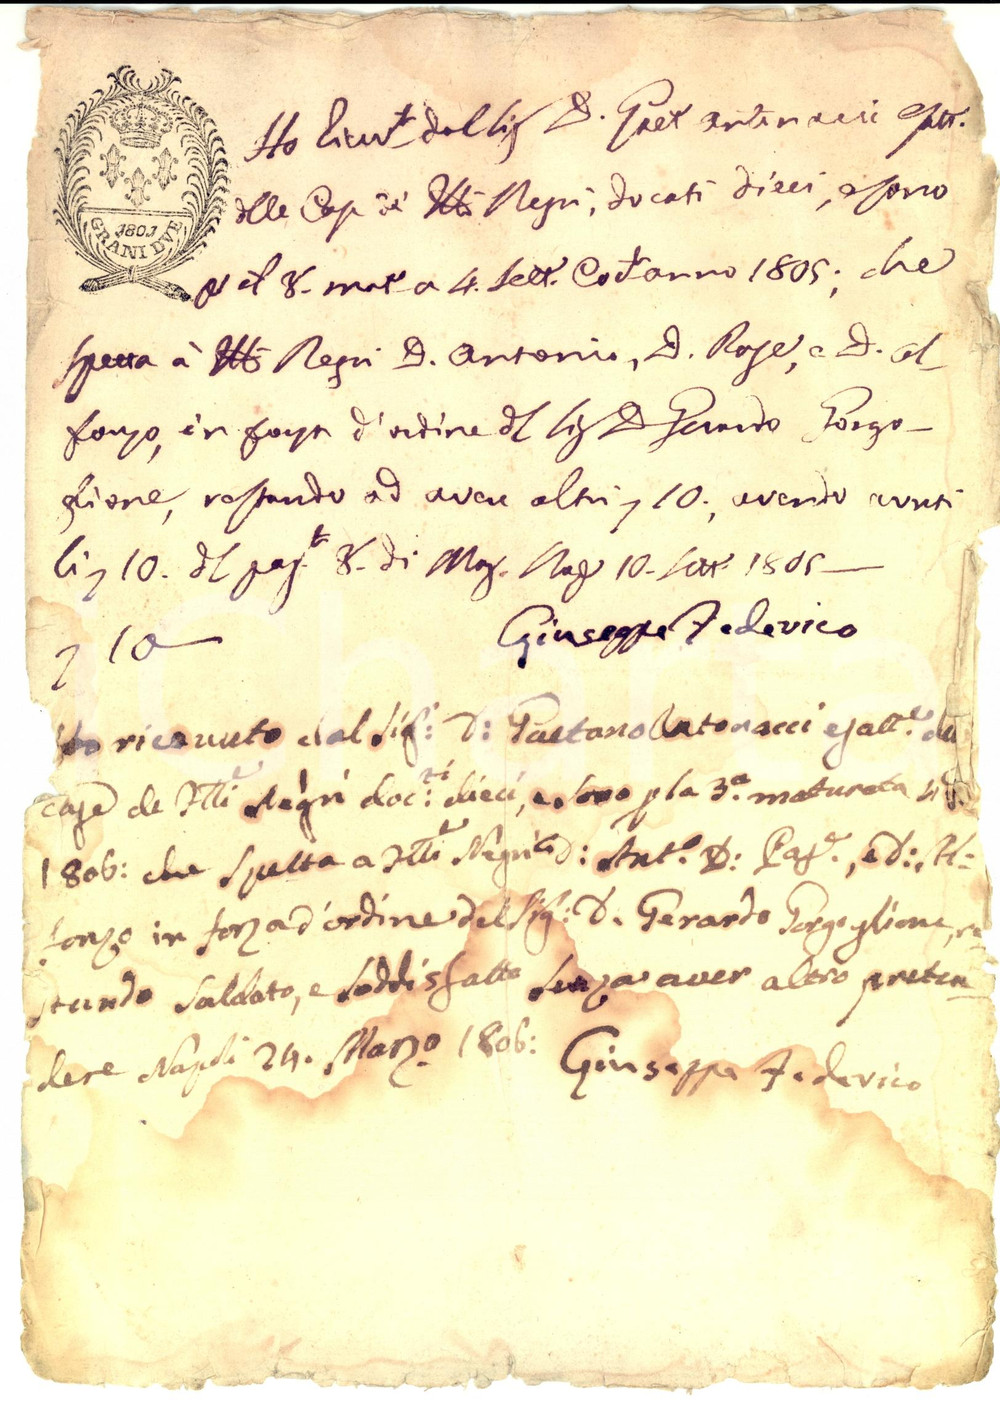 1801
GRANI DVE
Ho ricevt.º dal Sig.r D. Gaet.º Antonacci Esatt.
delle Case dei Negri, docati dieci, e sono
p il 8. mat.ª a 4. Sett. Cod.º anno 1805; che
spetta à Negri D. Antonio, D. , e D. Al-
fonzo, in forza d'ordine dl Sig.r D Gerardo Gorgo-
glione, restando ad avere altri 10., avendo avuti
li 10. dl pag.to 8. di Mag. Nap. 10. Sett. 1805
10
Giuseppe Federico
Ho ricevuto dal Sig.r: D: Gaetano Antonacci esatt.e del
case de Negri doc.ti: dieci, e sono p la 3.a maturata 4
1806: che spetta a Negri D: Ant.o D: , e D: Al-
fonzo in forza d'ordine del Sig.r: D. Gerardo Gorgoglione, re
stando saldato, e soddisfatto senza aver altro preten-
dere Napoli 24. Marzo 1806:
Giuseppe Federico